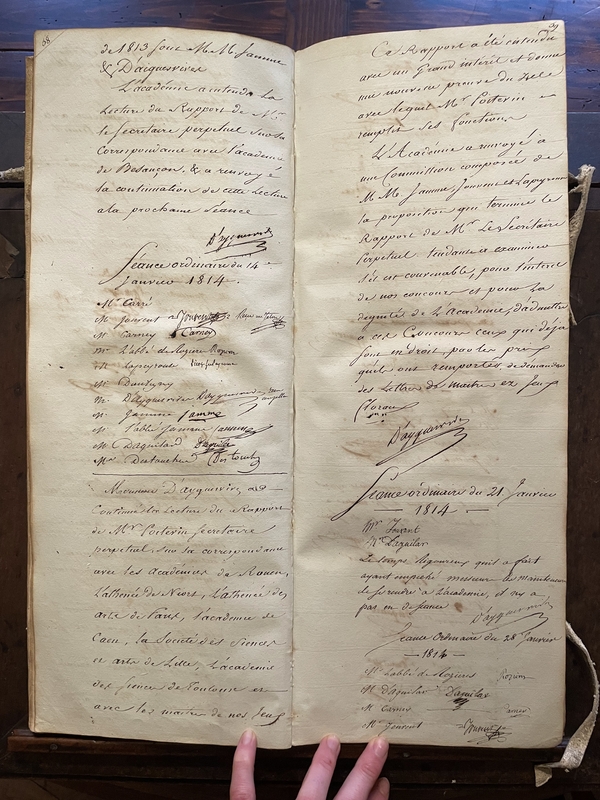 58
de 1813 sont M.M. Jamme
& D'aiguesvives
L'académie a entendu la
Lecture du Rapport de Mr.
le secretaire perpetuel sur sa
correspondance avec l'académie
de Besançon, & a renvoyé
la continuation de cette Lecture
a la prochaine séance
D'ayguesvives
Séance ordinaire du 14
Janvier 1814.
Mr. Carré
M. Jouvent
Mr Carney Carney
Mr. L'abbé de Rozieres Rozieres
M. Lapeyrouse
M. Dantigny
M. D'Ayguesvives D'Ayguesvives
Mr. Jamme Jamme
Mr. l'abbé Jamme Jamme
Mr. Daguilar Daguilar
Mr. Destouches
Monsieur D'ayguesvives a
Continué la Lecture du Rapport
de Mr Poitevin secretaire
perpetuel, sur sa correspondance
avec les académies de Rouen,
L'athenée de Niort, L'athenée des
arts de Paris, l'académie de
Caen, la Société des sciences
et arts de Lille, L'académie
des sciences de Toulouse et
avec les maitres de nos Jeux
59
Ce Rapport a été entendu
avec un Grand interet et donne
une nouvelle preuve du zele
avec lequel Mr. Poitevin
remplit ses fonctions.
L'Académie a renvoyé à
une Commission composée de
M.M. Jamme, Jouvent et Lapeyrouse
la proposition qui termine le
Rapport de Mr. Le Secrétaire
Perpetuel tendante a examiner
s'il est convenable, pour l'interet
de nos concours et pour La
dignité de L'Academie, d'admettre
a ces Concours ceux qui deja
sont en droit, par les prix
qu'ils ont remportés de demander
des Lettres de maitre ez Jeux
floraux
D'ayguesvives
Séance ordinaire du 21 Janvier
1814.
Mr. Jouvent
Mr Daguilar
Le temps rigoureux qu'il a fait
ayant empeché messieurs les mainteneurs
de se rendre a L'academie, il n'y a
pas eu de seance
D'ayguesvives
Séance Ordinaire du 28 Janvier
1814
Mr. L'abbé de Rozieres Rozieres
M. Daguilar Daguilar
M. Carney Carney
Mr. Jouvent Jouvent